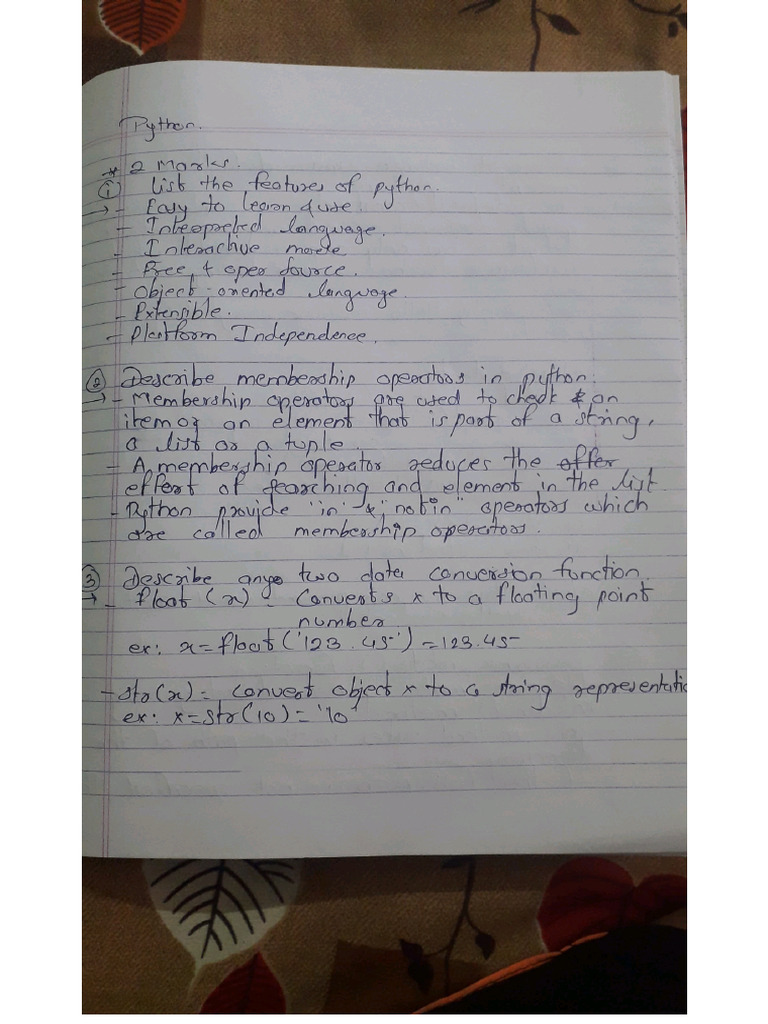 Python.
* 2 Marks.
① List the features of python.
→ - Easy to learn & use.
- Interpreted language.
- Interactive mode
- Free & open source.
- Object-oriented language.
- Extensible.
- Platform Independence.
② Describe membership operators in python.
→ - Membership operators are used to check & an
item or an element that is part of a string,
a list or a tuple.
- A membership operator reduces the offer
effert of searching and element in the list
- Python provide 'in' & "not in" operators which
are called membership operators.
③ Describe any two data conversion function.
→ - float (x) - Converts x to a floating point
number.
ex: x = float('123.45') = 123.45
- str(x) = convert object x to a string representatio
ex: x = str(10) = '10'